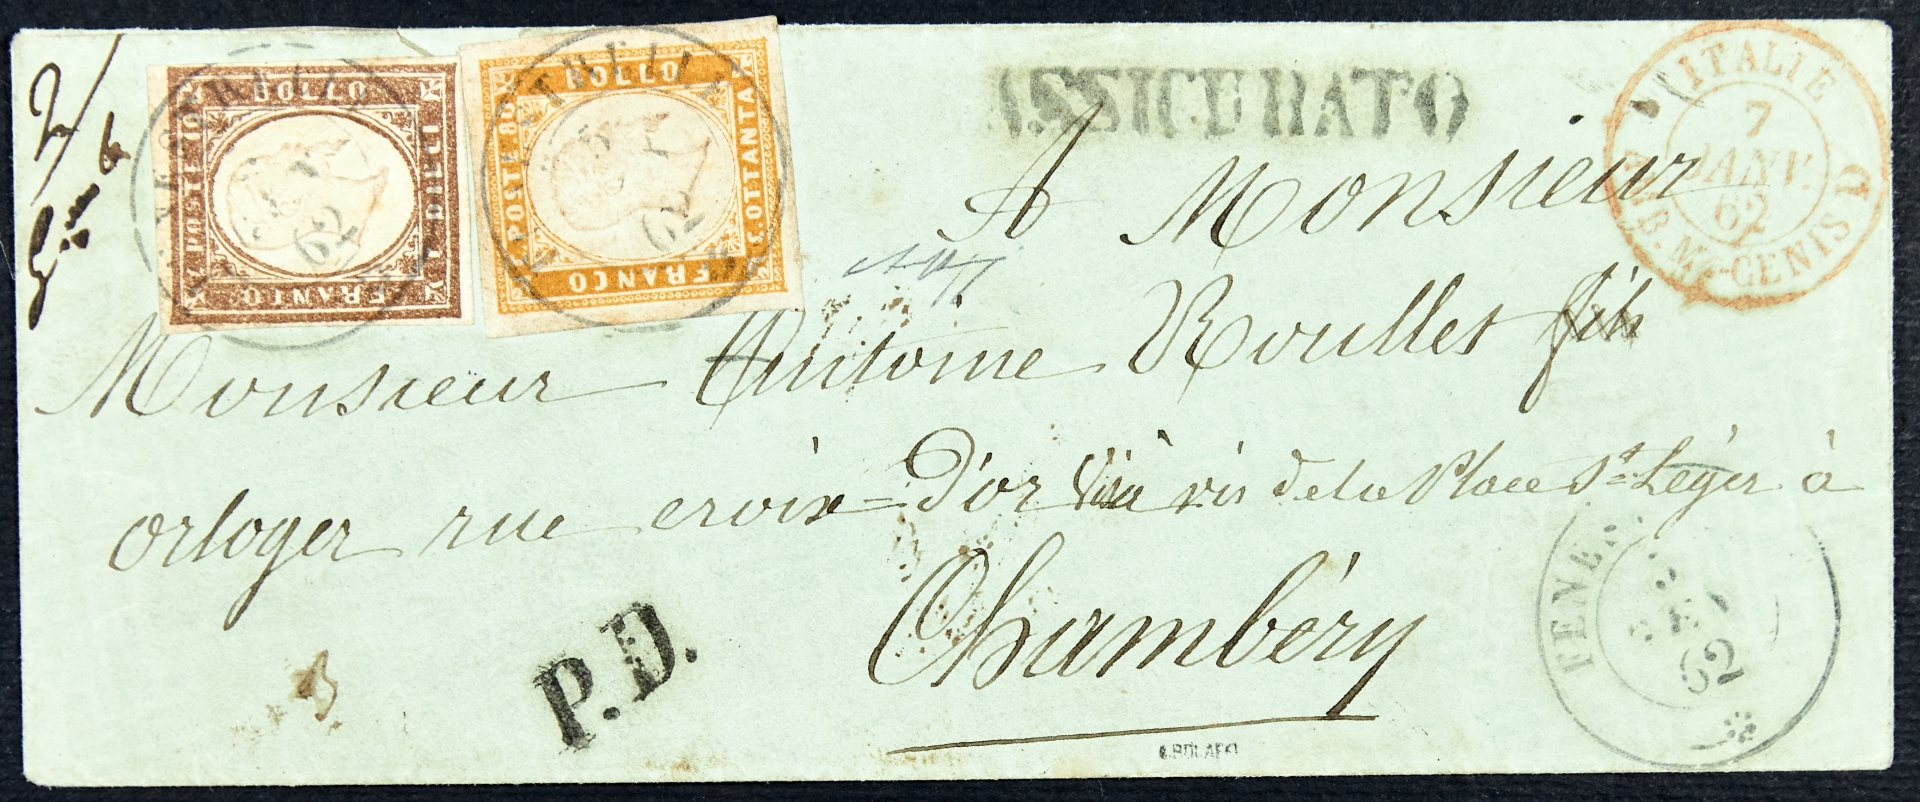 ASSICURATO
ITALIE
7
JANV.
62
AMB. Mt-CENIS D
BOLLO
C. DIECI
FRANCO
POSTE 10
62
BOLLO
C. OTTANTA
FRANCO
POSTE 80
62
2/
A Monsieur
Monsieur Antoine Roulles fils
orloger rue croix=D'or Vis à vis de la Place St Léger à
Chambéry
P.D.
FENE
62